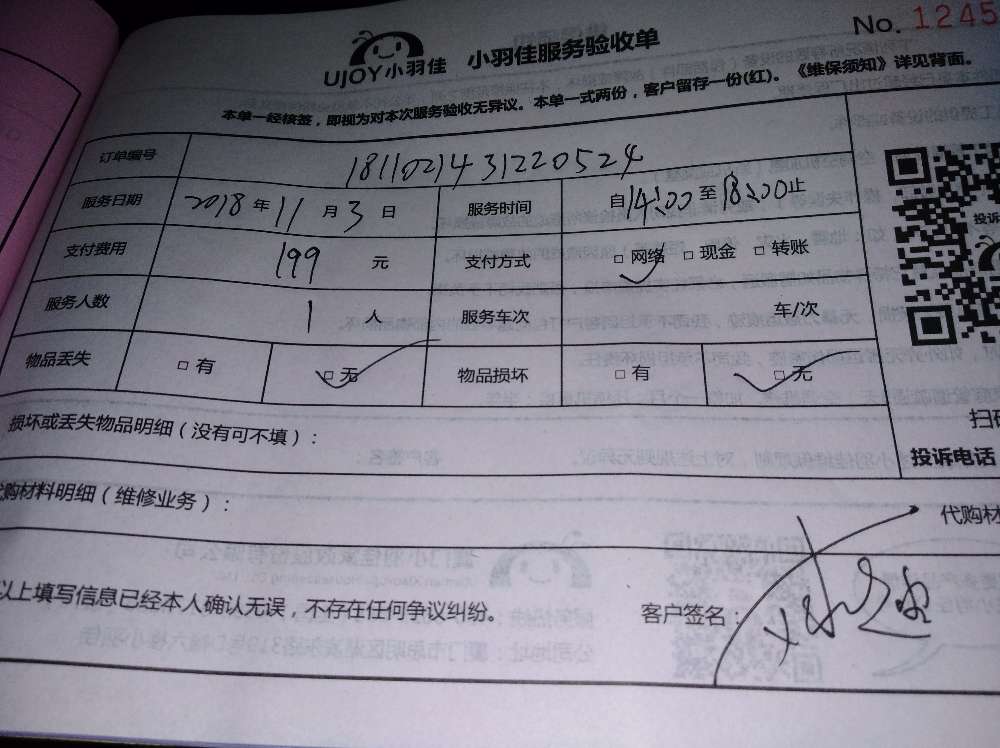 No. 1245
UJOY小羽佳 小羽佳服务验收单
本单一经核签，即视为对本次服务验收无异议。本单一式两份，客户留存一份(红)。《维保须知》详见背面。
订单编号 1811021431220524
服务日期 2018年11月3日 服务时间 自14:00至18:00止
支付费用 199元 支付方式 □网络 □现金 □转账
服务人数 1人 服务车次 车/次
物品丢失 □有 □无 物品损坏 □有 □无
损坏或丢失物品明细（没有可不填）：
投诉
扫码
投诉电话
代购材料明细（维修业务）：
代购材
以上填写信息已经本人确认无误，不存在任何争议纠纷。
客户签名：